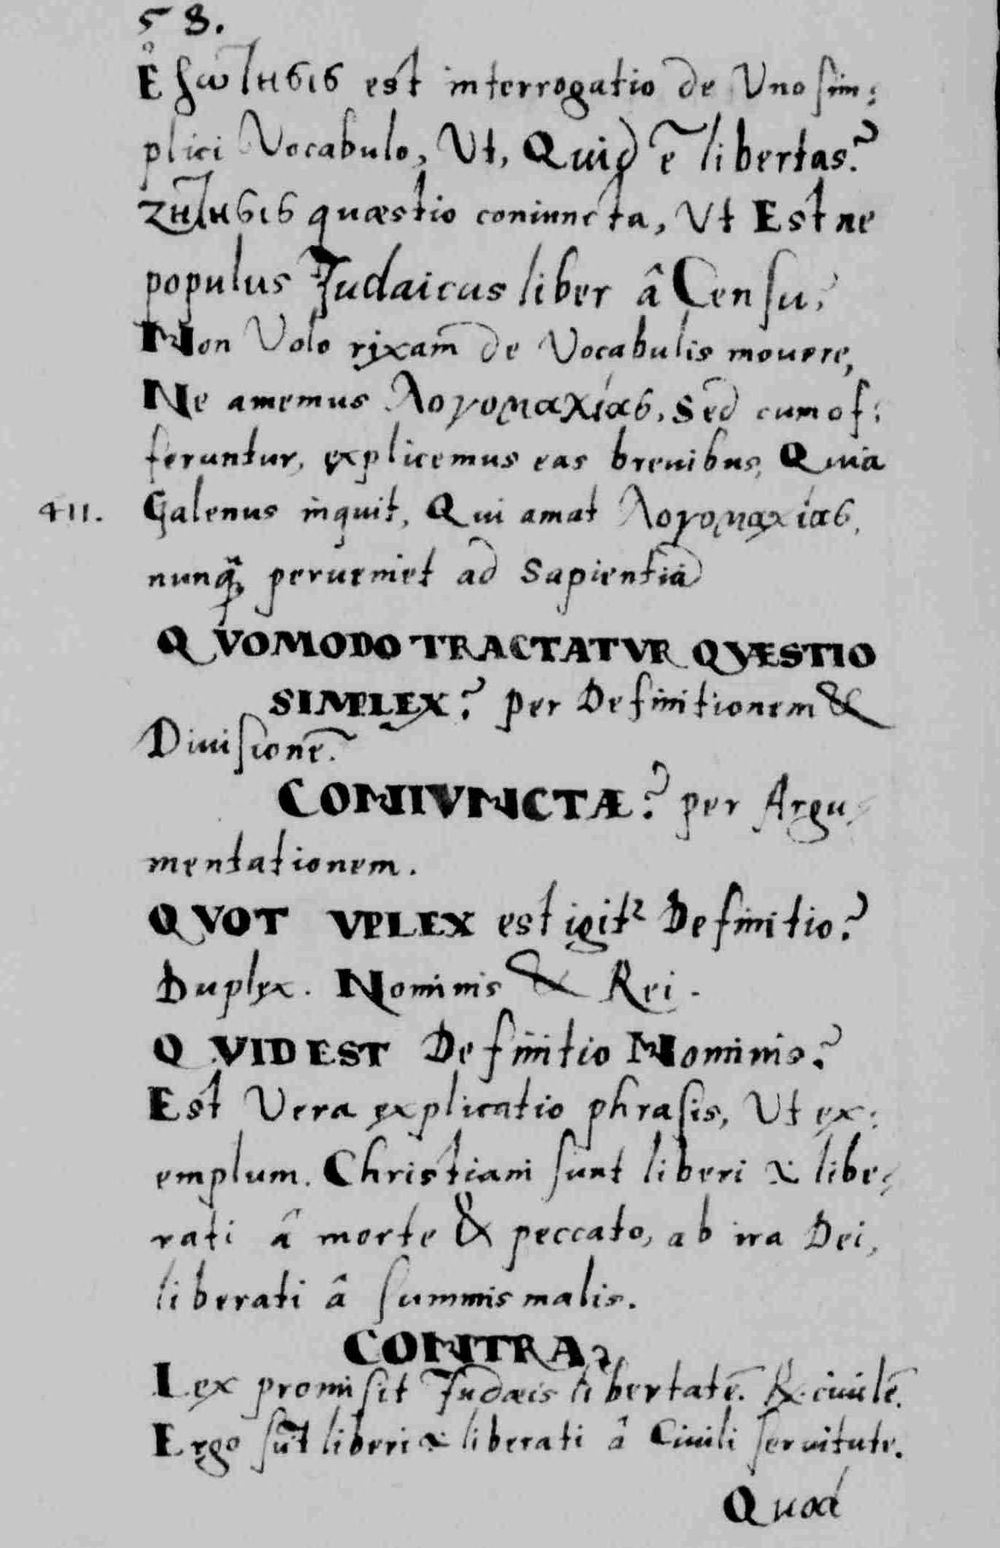 53.
Ἐρώτησις est interrogatio de Uno sim:
plici Vocabulo, Ut, Quid ē libertas?
ζήτησις quæstio coniuncta, Ut Est ne
populus Judaicus liber â Censu,
Non Volo rixam de Vocabulis mouere,
Ne amemus λογομαχίας, Sed cum of:
feruntur, explicemus eas breuibus, Quia
411. Galenus inquit, Qui amat λογομαχίας,
nunq̃ perueniet ad Sapientiā
QVOMODO TRACTATVR QVÆSTIO
SIMPLEX? per Definitionem &
Diuisionē.
CONIVNCTÆ? per Argu
mentationem.
QVOT VPLEX est igit² Definitio?
Duplex. Nominis & Rei.
QVID EST Definitio Nominis?
Est Vera explicatio phrasis, Ut ex:
emplum. Christiani sunt liberi .i. libe,
rati â morte & peccato, ab ira Dei,
liberati â summis malis.
CONTRA,
Lex promisit Judæis libertatē. R. ciuilē.
Ergo sūt liberi .i. liberati â Ciuili seruitute.
Quod